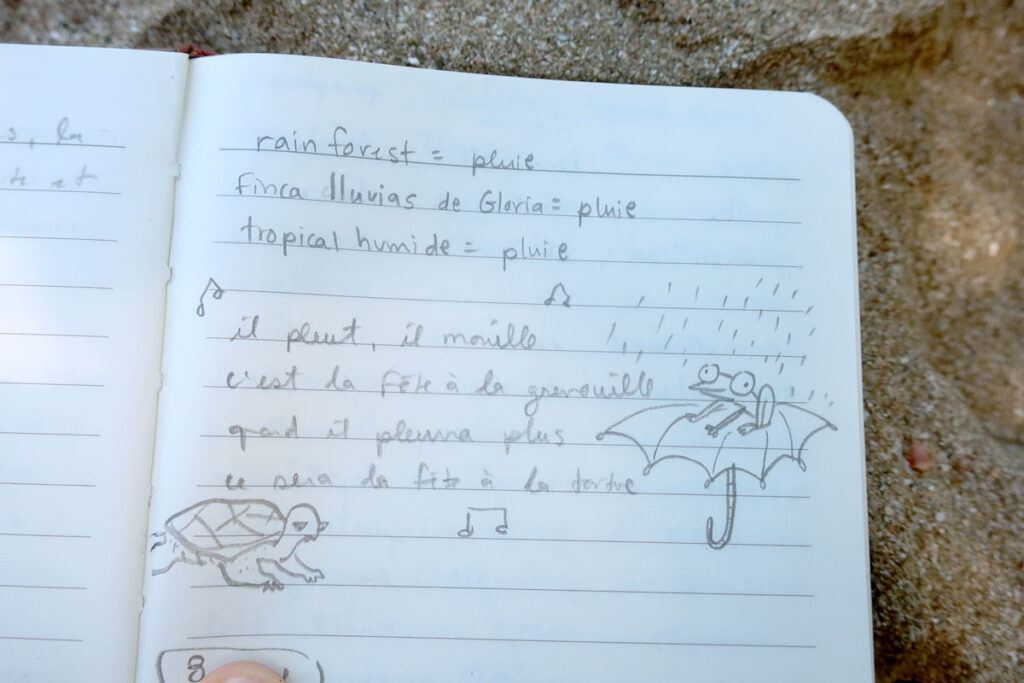 s, la
et
rain forest = pluie
Finca lluvias de Gloria = pluie
tropical humide = pluie
il pleut, il mouille
c'est la fête à la grenouille
quand il pleuvra plus
ce sera la fête à la tortue
8